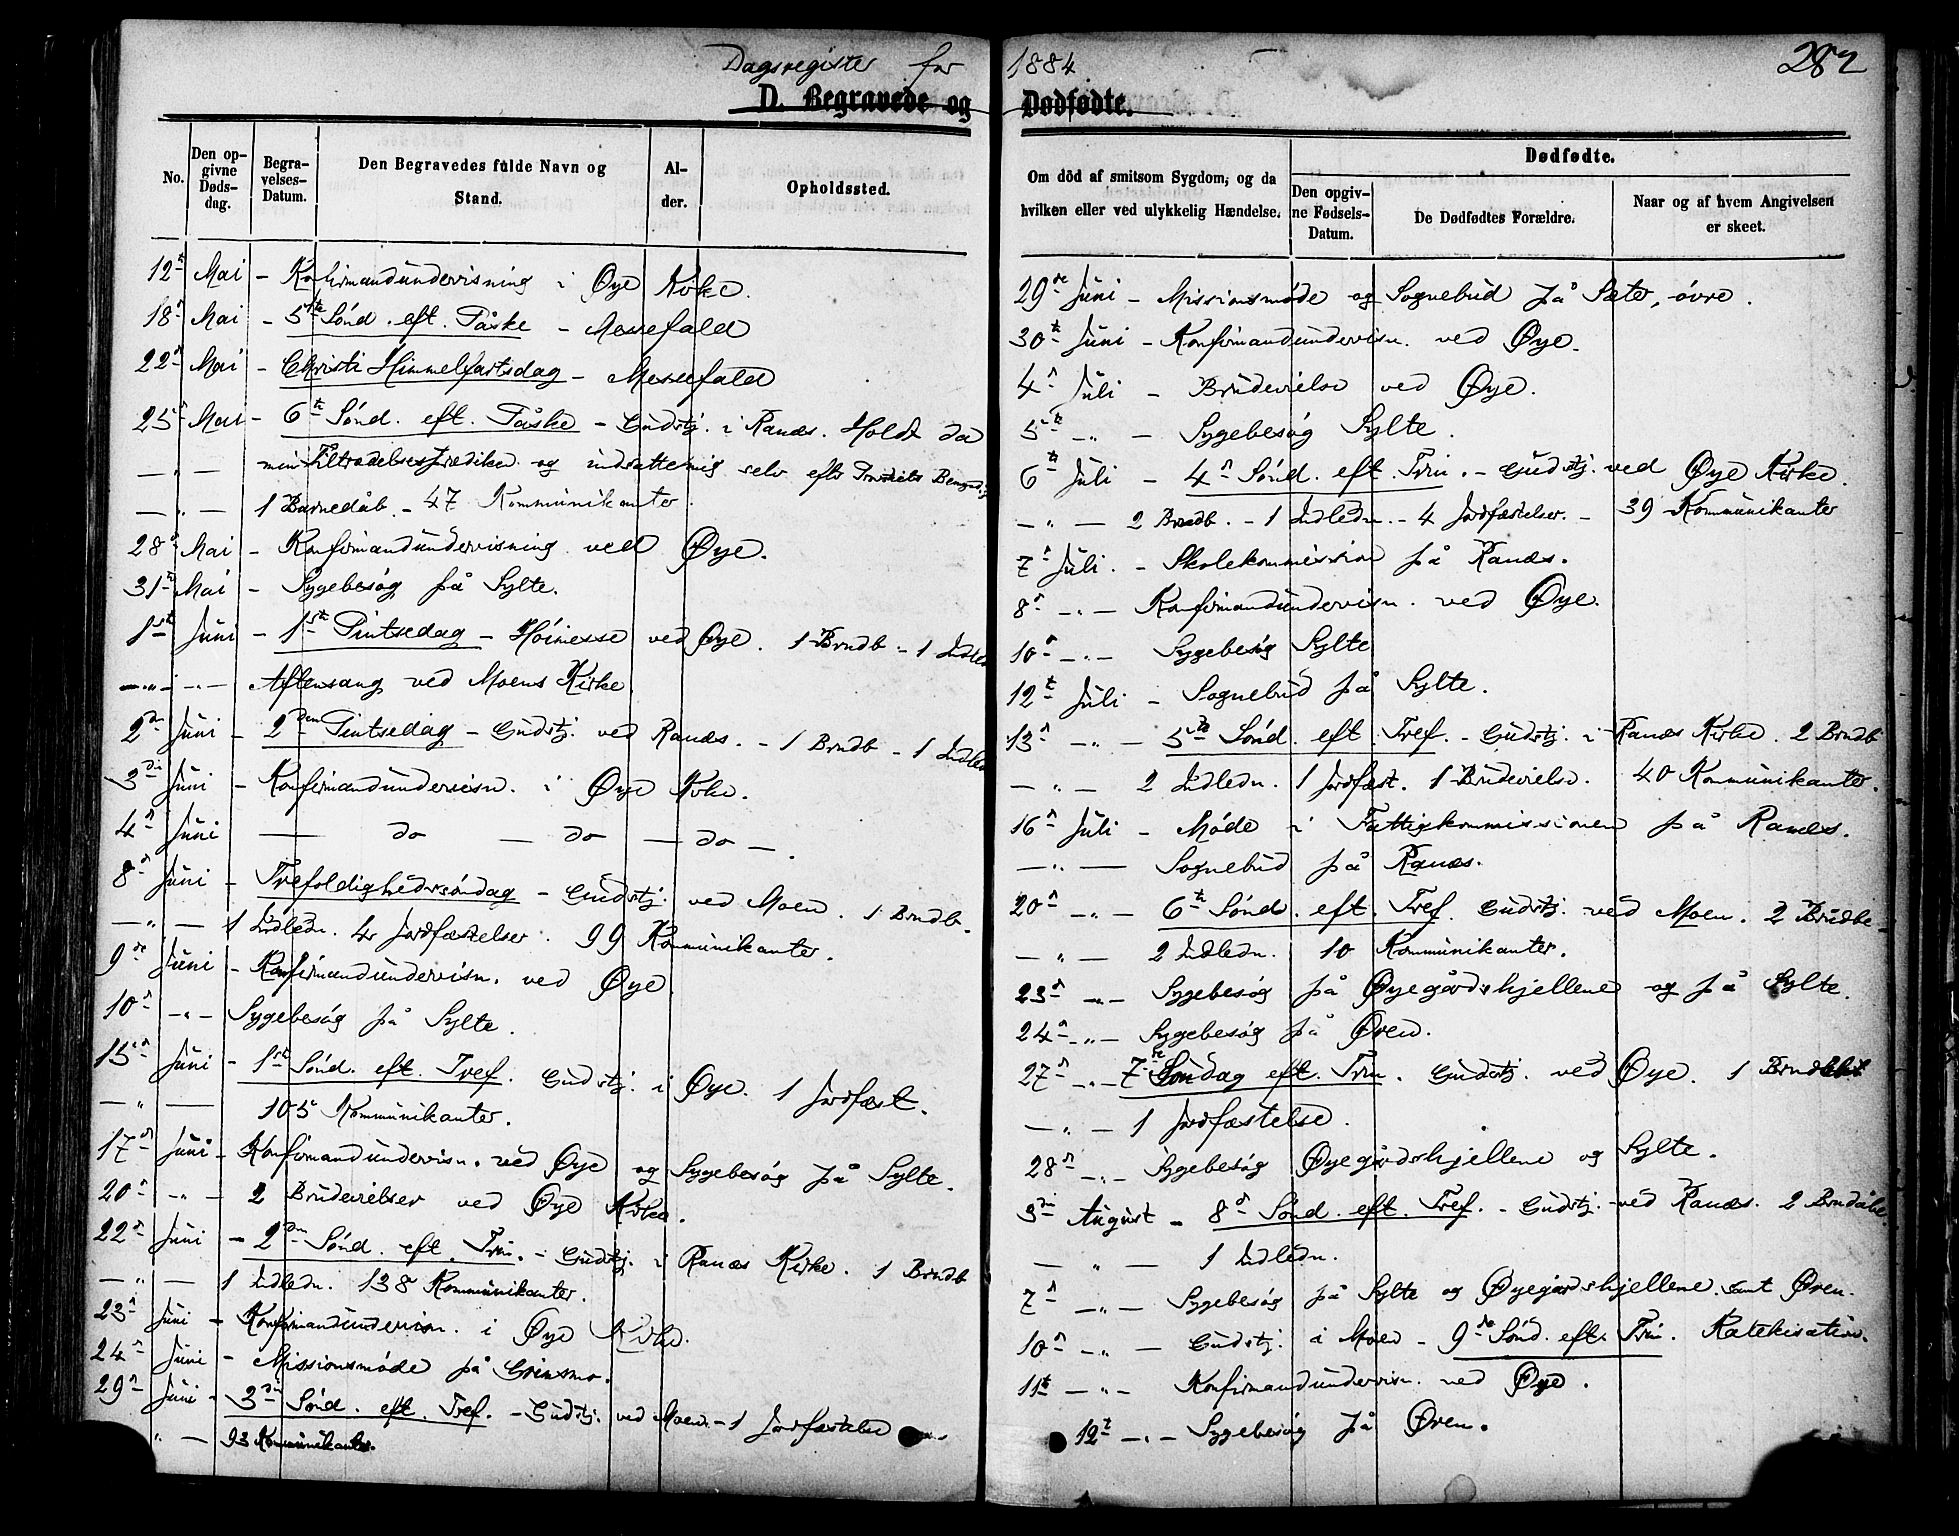 Dagsregister for 1884
282
D. Begravede og Dødfødte.
No.
Den opgivne Dødsdag.
Begravelses-Datum.
Den Begravedes fulde Navn og Stand.
Alder.
Opholdssted.
Om död af smitsom Sygdom, og da hvilken eller ved ulykkelig Hændelse.
Dødfødte.
Den opgivne Fødsels-Datum.
De Dødfødtes Forældre.
Naar og af hvem Angivelsen er skeet.
12t Mai - Konfirmandundervisning i Øye Kirke.
18n Mai - 5te Sönd. eft. Påske - Messefald
22n Mai - Christi Himmelfartsdag - Messefald
25n Mai - 6te Sönd. eft. Påske - Gudstj. i Ranæs. Holdt da
- " - min Tiltrædelsesprædiken og indsatte mig selv efter
- " - 1 Barnedåb - 47 Kommunikanter.
28n Mai - Konfirmandundervisning ved Øye.
31te Mai - Sygebesög på Sylte.
1ste Juni - 1ste Pintsedag - Höimesse ved Øye. 1 Brndb - 1 Indled
- " - " - Aftensang ved Moens Kirke
2den Juni - 2den Pintsedag - Gudstj. ved Ranæs. - 1 Brndb - 1 Indled
3di Juni - Konfirmandundervisn. i Øye Kirke.
4n Juni - do - do - do - .
8n Juni - Trefoldighedssöndag - Gudstj. ved Moen. 1 Brndb.
- " - 1 Indledn. 4 Jordfæstelser. 99 Kommunikanter.
9de Juni - Konfirmandundervisn. ved Øye
10n - " - Sygebesög på Sylte.
15n Juni - 1ste Sönd. eft. Tref. Gudstj. i Øye. 1 Jordfæst.
- " - 105 Kommunikanter.
17n Juni - Konfirmandundervisn. ved Øye og Sygebesög på Sylte.
20n - " - 2 Brudevielser ved Øye Kirke.
22n Juni - 2den Sönd. eft. Trin. - Gudstj. i Ranæs Kirke. 1 Brndb
- " - 1 Indledn. 138 Kommunikanter.
23n Juni - Konfirmandundervisn. i Øye Kirke.
24n Juni - Missionsmöde på Grinsmo.
29n Juni - 3di Sönd. eft. Tref. - Gudstj. ved Moen - 1 Jordfæstelse
" - 93 Kommunikanter.
29de Juni - Missionsmöde og Sognebud på Sæter, övre.
30te Juni - Konfirmandundervisn. ved Øye.
4n Juli - Brudevielse ved Øye.
5te - " - Sygebesög Sylte.
6te Juli - 4n Sönd. eft. Trin. - Gudstj. ved Øye Kirke.
- " - 2 Brndb. - 1 Indledn. - 4 Jordfæstelser. - 39 Kommunikanter
7n Juli. - Skolekommission på Ranæs.
8n - " - Konfirmandundervisn. ved Øye.
10n - " - Sygebesög Sylte
12t Juli - Sognebud på Sylte.
13n - " - 5te Sönd. eft. Tref. - Gudstj. i Ranæs Kirke. 2 Brndb
- " - 2 Indledn. 1 Jordfæst. 1 Brudevielse. 40 Kommunikanter.
16n Juli - Möde i Fattigkommissionen på Ranæs.
- " - Sognebud på Ranæs.
20n - " - 6te Sönd. eft. Tref. Gudstj. ved Moen. 2 Brndbe-
- " - 2 Indledn. 10 Kommunikanter.
23n - " - Sygebesög på Øyegårdshjellene og på Sylte.
24n - " - Sygebesög på Ören.
27n - " - 7de Söndag eft. Trin. Gudstj. ved Øye. 1
- " - 1 Jordfæstelse.
28n - " - Sygebesög Øyegårdshjellene og Sylte.
3di August - 8n Sönd. eft. Tref. - Gudstj. ved Ranæs. 2 Brndåbe
- " - 1 Indledn.
7n - " - Sygebesög på Sylte og Øyegårdshjellene samt Ören.
10n - " - Gudstj. i Moen - 9de Sönd. eft. Trin. Katekisation.
11t - " - Konfirmandundervisn. ved Øye.
12t - " - Sygebesög på Ören.